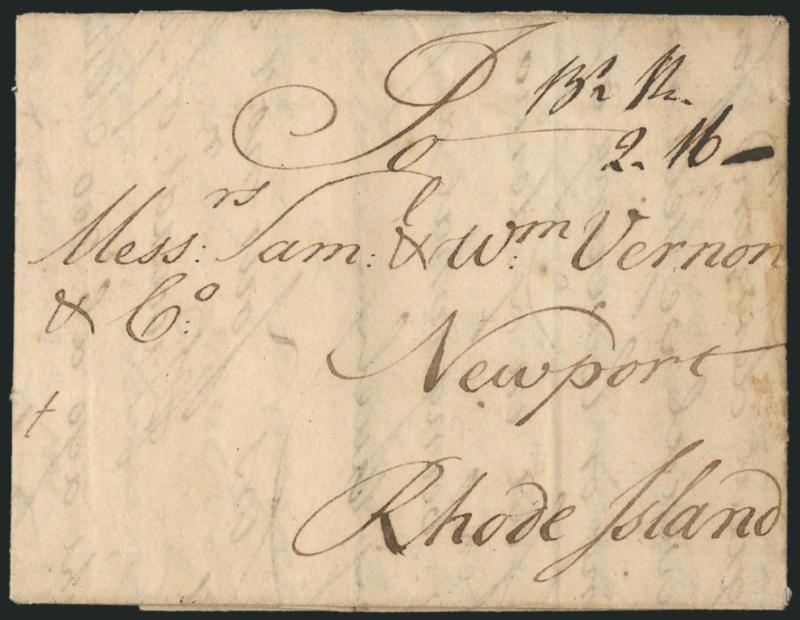 To
2. 16
Mess:rs Sam:l & Wm: Vernon
& Co:
Newport
Rhode Island